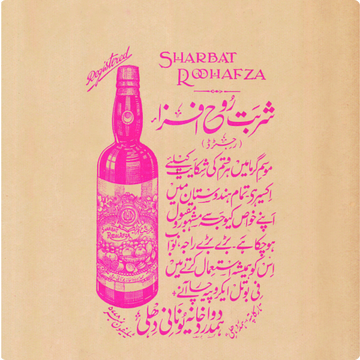 Registered
SHARBAT
ROOHAFZA
شربت روح افزا
(رجسٹرڈ)
موسم گرما میں ہر قسم کی شکایت کیلئے
اکسیر ہے تمام ہندوستان میں
اپنے خواص کیوجہ سے مشہور و مقبول
ہو چکا ہے۔ بڑے بڑے راجہ، نواب
اس کو ہمیشہ استعمال کرتے ہیں
فی بوتل ایک روپیہ چار آنے
ہمدرد دواخانہ یونانی دہلی